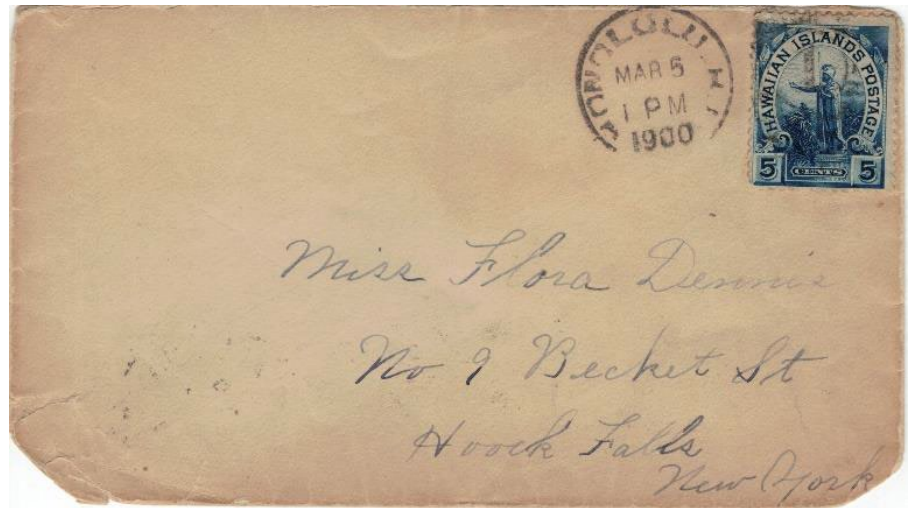 HONOLULU. H. I.
MAR 5
1 PM
1900
HAWAIIAN ISLANDS POSTAGE
5 CENTS 5
Miss Flora Dennis
No 9 Becket St
Hoosck Falls
New York